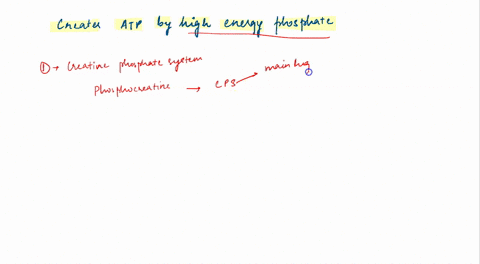 Creates ATP by high energy phosphate
① → Creatine phosphate system
Phosphocreatine → CPS → main